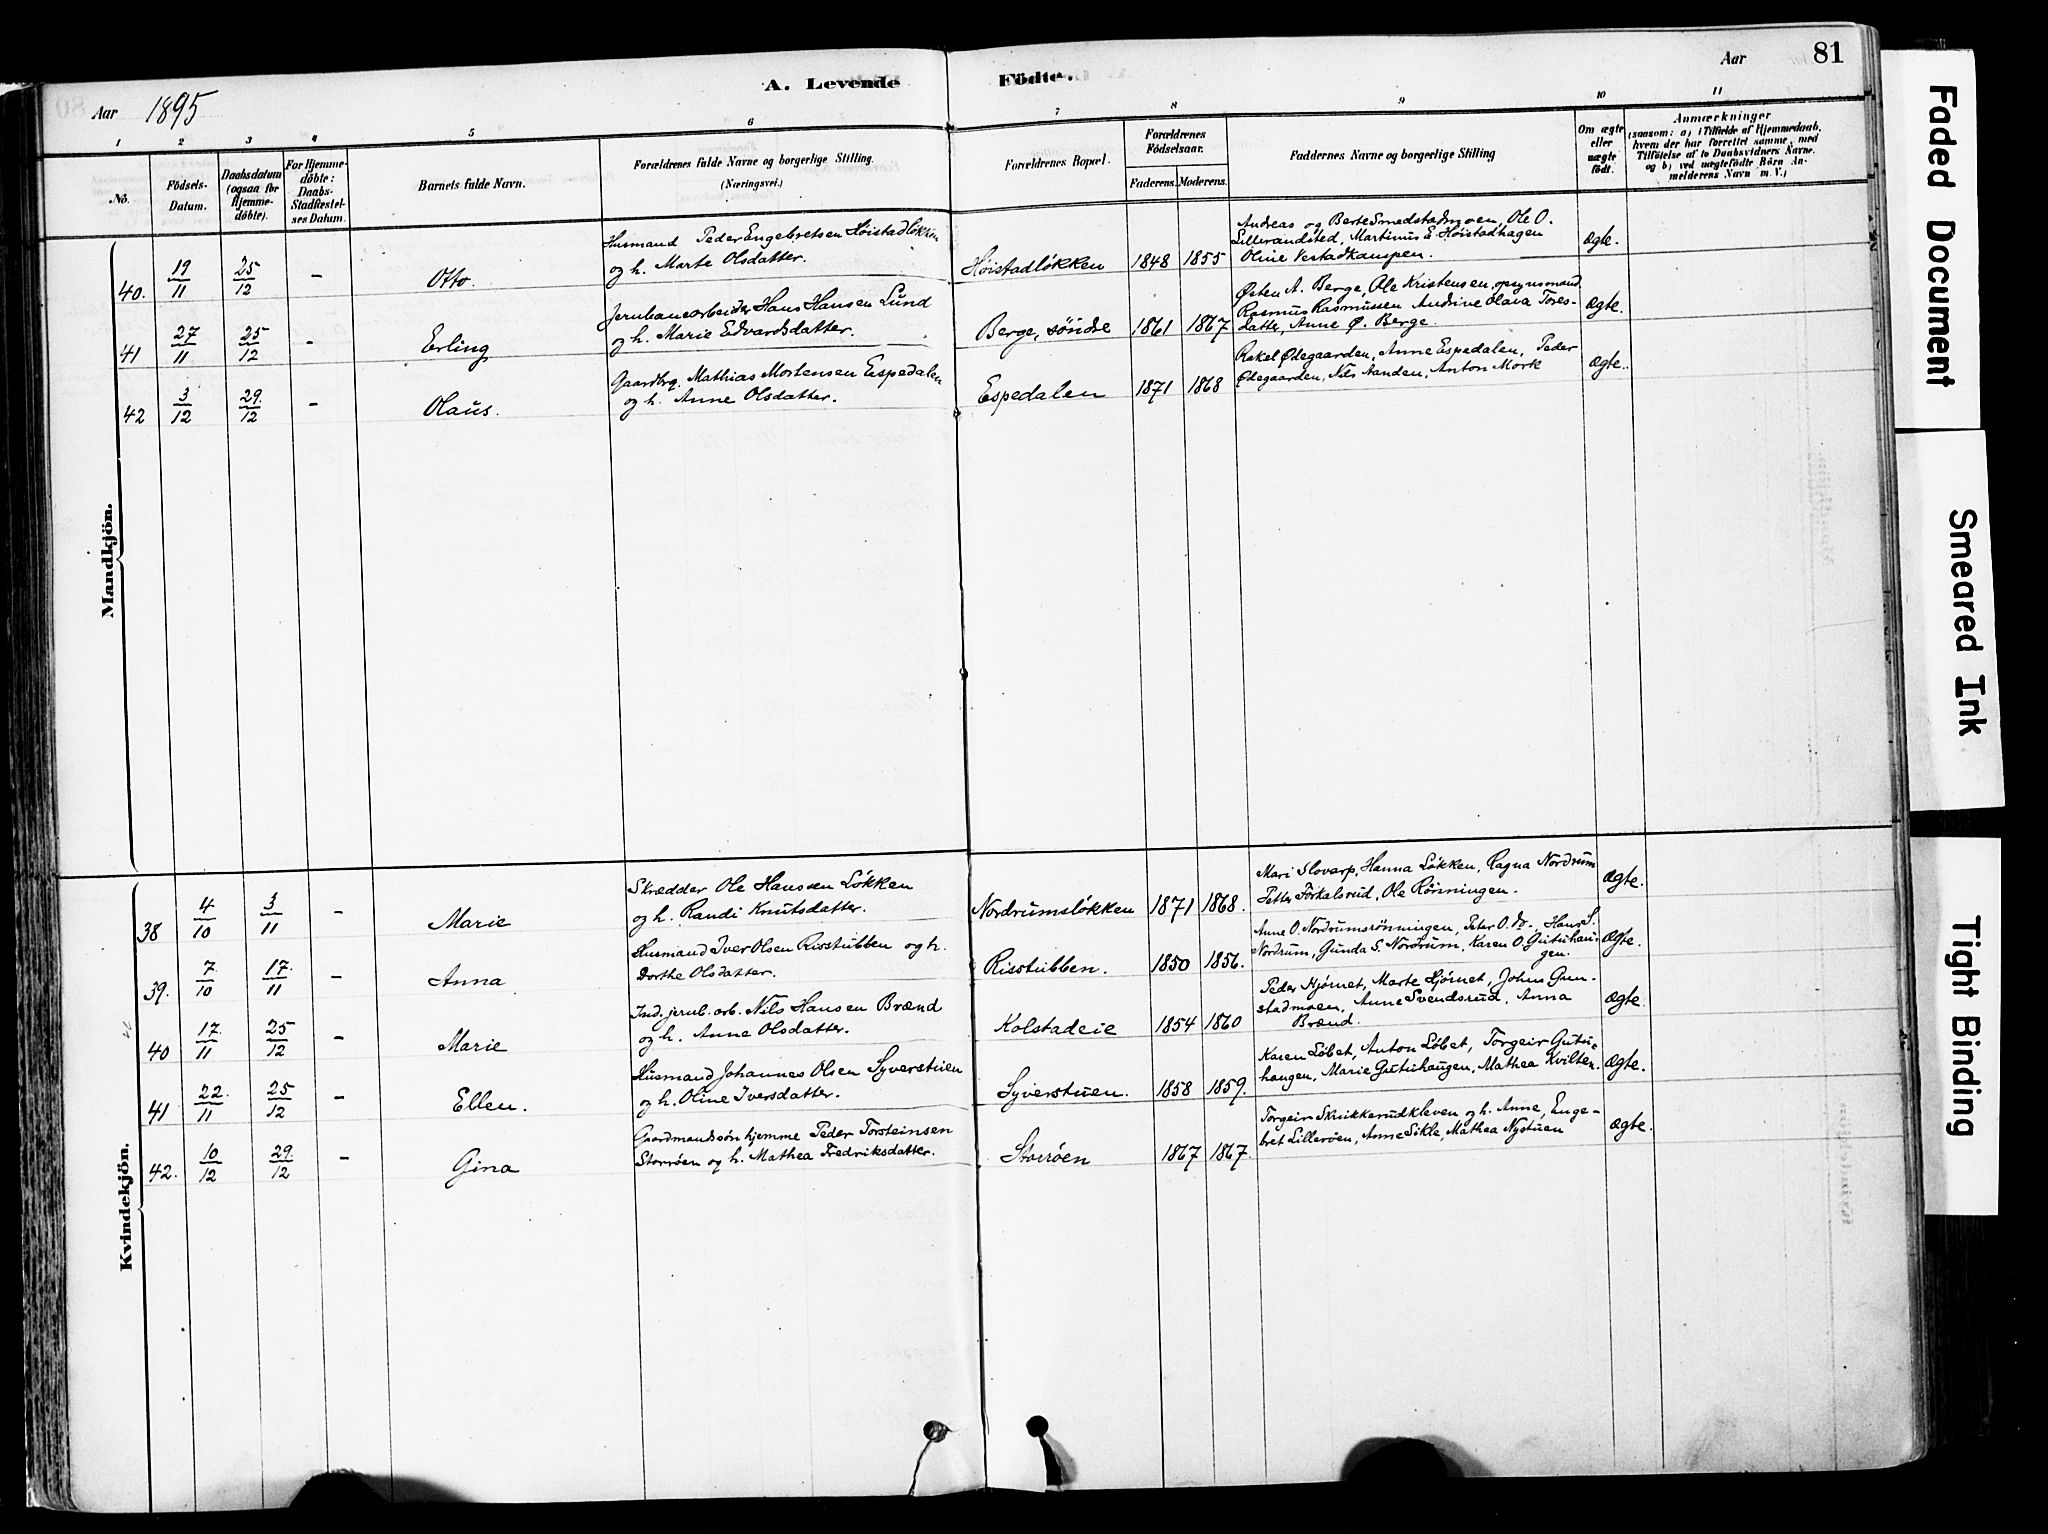 81
A. Levende Födte.
Aar 1895
Aar
1 2 3 4 5 6 7 8 9 10 11
No.
Födsels-Datum.
Daabsdatum (ogsaa for Hjemme-döbte).
For Hjemme-döbte: Daabs-Stadfæstel-ses Datum.
Barnets fulde Navn.
Forældrenes fulde Navne og borgerlige Stilling.
(Næringsvei.)
Forældrenes Bopæl.
Forældrenes Födselsaar.
Faderens. Moderens.
Faddernes Navne og borgerlige Stilling
Om ægte eller uægte födt.
Anmærkninger
(saasom: a) i Tilfælde af Hjemmedaab,
hvem der har forrettet samme, med
Tilföielse af to Daabsvidners Navne.
og b) ved uægtefödte Börn An-
melderens Navn m. V.)
Mandkjön.
40. 19/11 25/12 - Otto.
Husmand Peder Engebretsen Höistadløkken
og h. Marte Olsdatter.
Höistadløkken 1848 1855
Andreas og Berte Smedstadmoen, Ole O.
Lillerandsted, Martinus E. Höistadhagen
Oline Vestadkampen.
Ægte.
41 27/11 25/12 - Erling
Jernbanearbeider Hans Hansen Lund
og h. Marie Edvardsdatter.
Berge, søndre 1861 1867
Østen A. Berge, Ole Kristensen, opsynsmand
Rasmus Rasmussen Andrine Olava Tores-
datter, Anne Ø. Berge.
Ægte.
42 3/12 29./12 - Olaus.
Gaardbrg. Mathias Mortensen Espedalen
og h. Anne Olsdatter.
Espedalen 1871 1868
Rakel Ødegaarden, Anne Espedalen, Peder
Ødegaarden, Nils Aanden, Anton Mork
Ægte.
Kvindekjön.
38 4/10 3/11 - Marie
Skrædder Ole Hansen Løkken
og h. Randi Knutsdatter.
Nordrumsløkken 1871 1868.
Mari Slovarp, Hanna Løkken, Ragna Nordrum
Petter Forkalsrud, Ole Rönningen.
Ægte.
39. 7/10 17./11 - Anna
Husmand Iver Olsen Risstubben og h.
Dorthe Olsdatter.
Risstubben. 1850 1856.
Anne O. Nordrumsrönningen, Peter O. Do., Hans S.
Nordrum, Gunda S. Nordrum, Karen O. Gutuhaugen.
Ægte.
40 17./11 25/12 - Marie
Ind. jernb. arb. Nils Hansen Brænd
og h. Anne Olsdatter.
Kolstadeie 1854 1860
Peder Hjørnet, Marte Hjørnet, Johan Gun-
stadmoen, Anne Svendsrud, Anna
Brænd.
Ægte.
41 22./11 25/12 - Ellen.
Husmand Johannes Olsen Syverstuen
og h. Oline Iversdatter.
Syverstuen. 1858 1859.
Karen Løbet, Anton Løbet, Torgeir Gutu-
haugen, Marie Gutuhaugen, Mathea Kvilten.
Ægte.
42. 10/12 29./12 - Gina
Gaardmandssøn hjemme Peder Torsteinsen
Storrøen og h. Mathea Fredriksdatter.
Storrøen 1867 1867.
Torgeir Skuikkerudkleven og h. Anne, Enge-
bret Lillerøen, Anne Sikle, Mathea Nystuen
Ægte.
Faded Document
Smeared Ink
Tight Binding